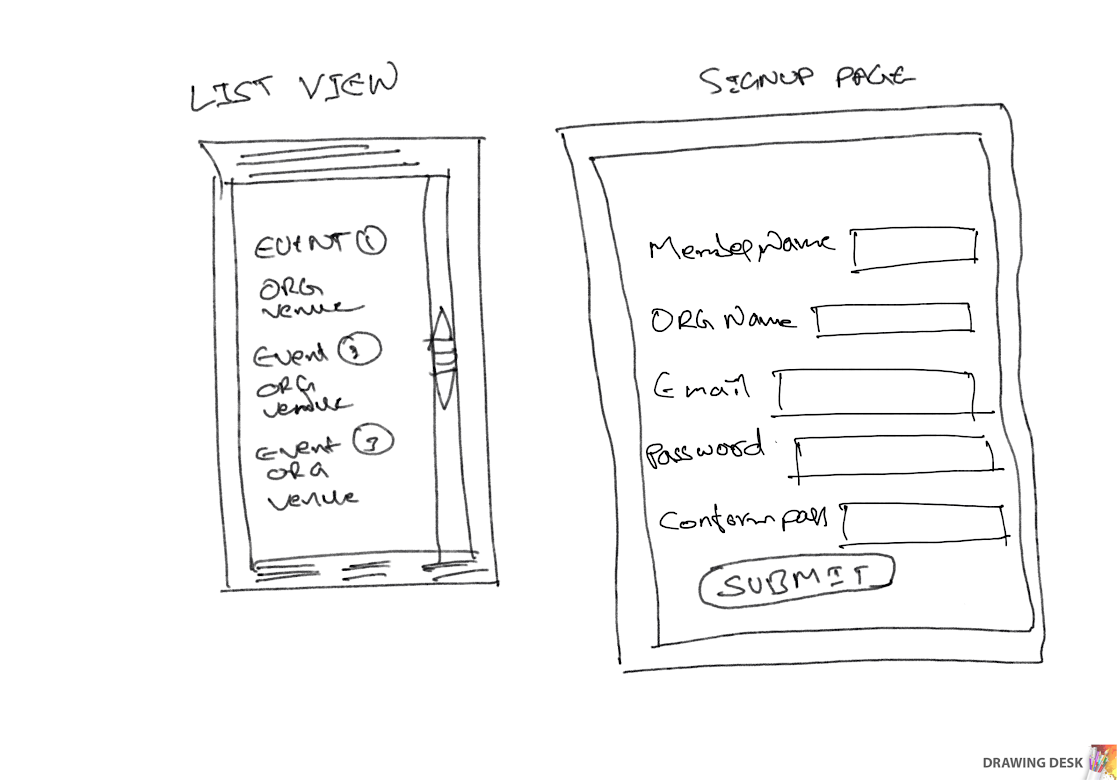 LIST VIEW
EVENT 1
ORG
venue
Event 2
ORG
venue
Event 3
ORG
venue
SIGNUP PAGE
Member Name
ORG Name
Email
Password
Conform pass
SUBMIT
DRAWING DESK